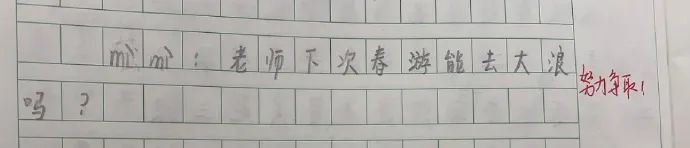 mì mì：老师下次春游能去大浪
吗？
努力争取！